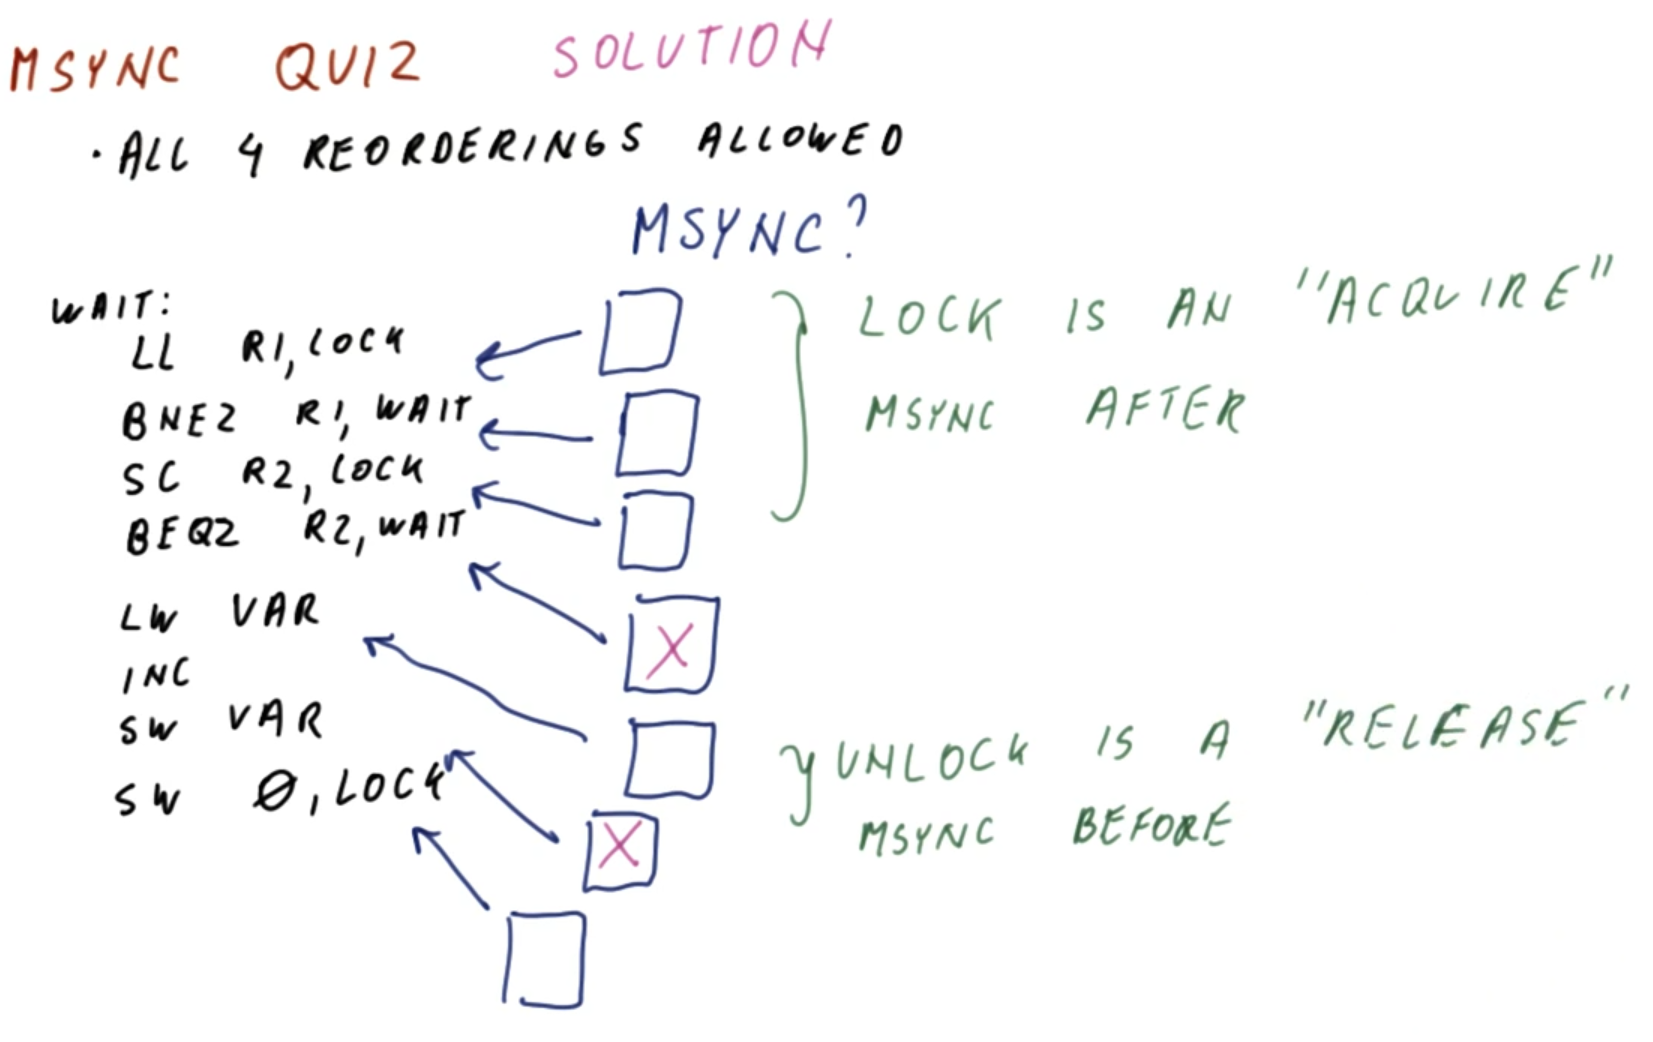 MSYNC QUIZ SOLUTION
· ALL 4 REORDERINGS ALLOWED
MSYNC?
WAIT:
LL R1, LOCK
BNEZ R1, WAIT
SC R2, LOCK
BEQZ R2, WAIT
LW VAR
INC
SW VAR
SW Ø, LOCK
LOCK IS AN "ACQUIRE"
MSYNC AFTER
X
UNLOCK IS A "RELEASE"
MSYNC BEFORE
X